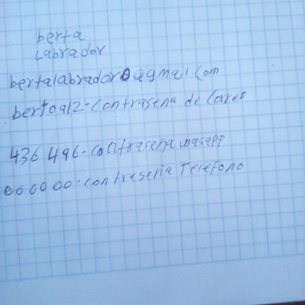 berta
Labrador
bertalabrador0@gmail.com
bertoa12-contraseña de Correo
436 496-contraseña wasapp
000000-contraseña Telefono